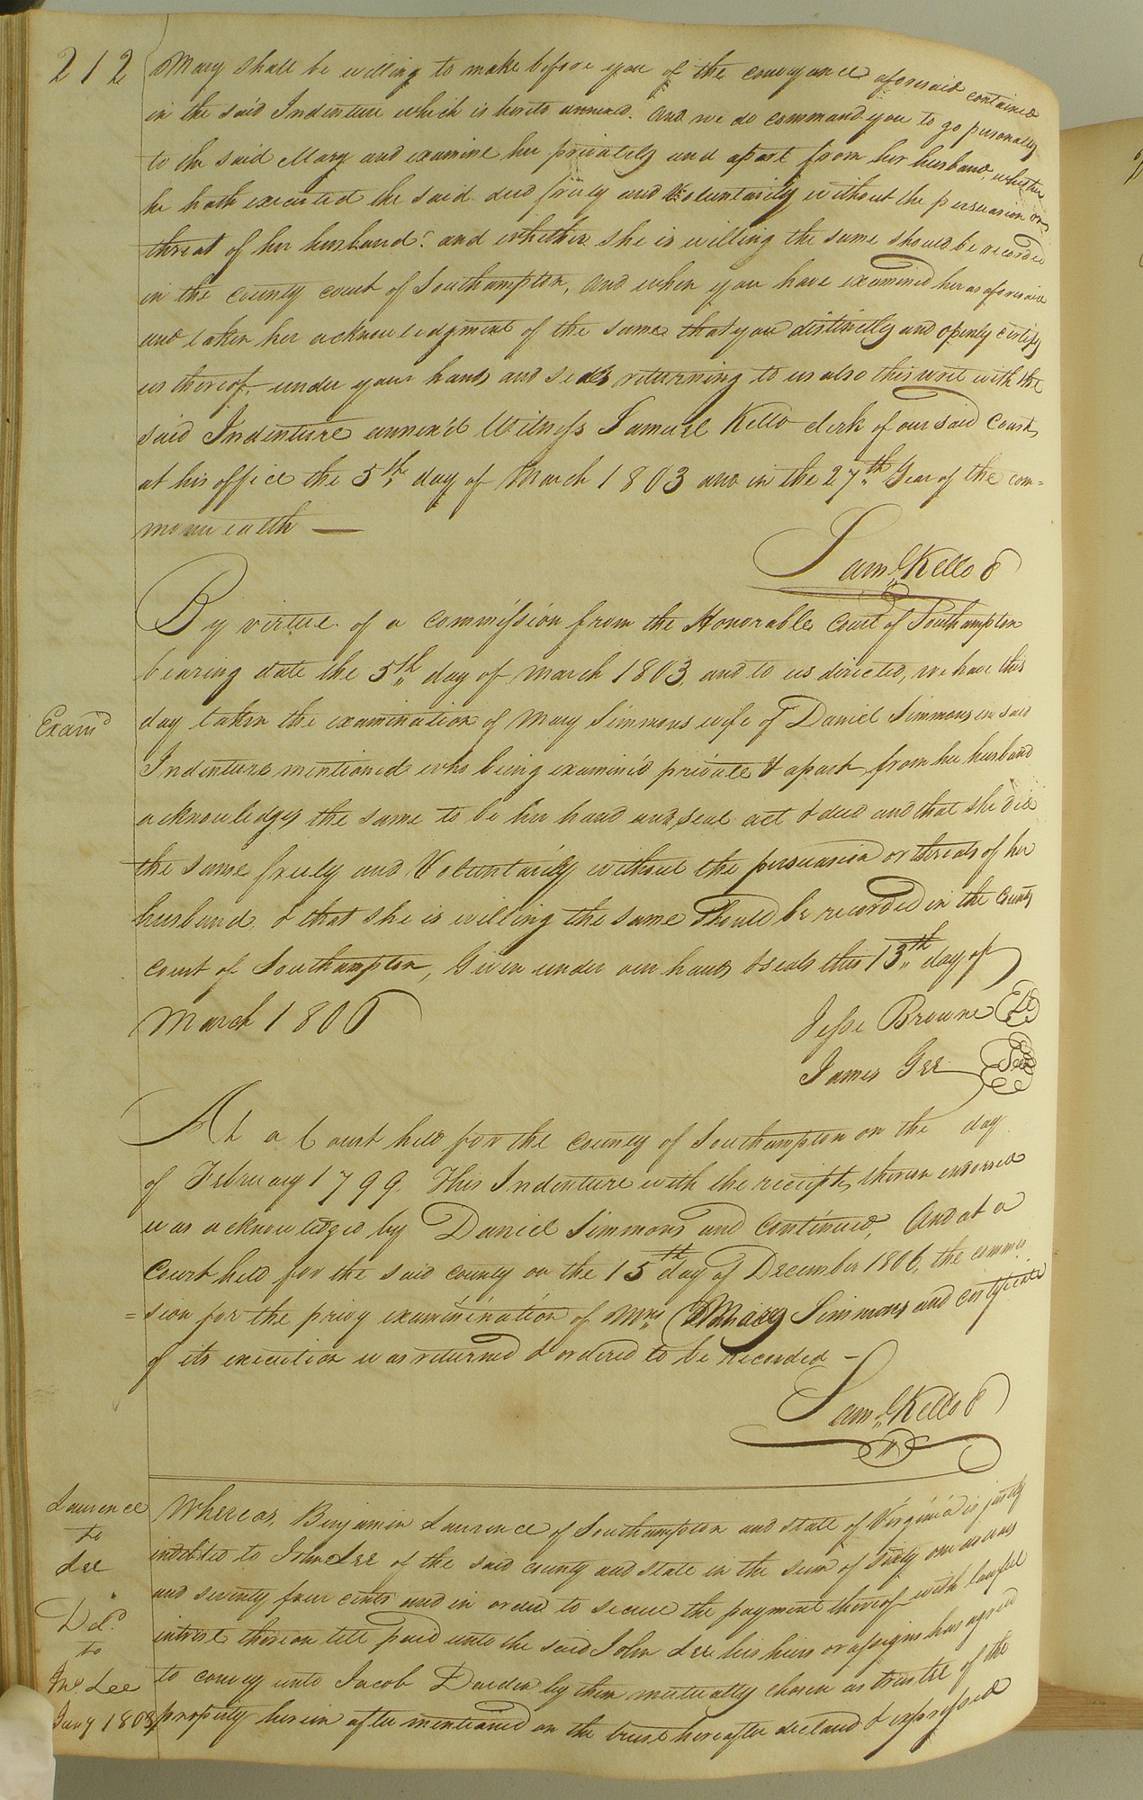 212
Mary shall be willing to make before you of the conveyance aforesaid contained
in the said Indenture which is hereto annexed. And we do command you to go personally
to the said Mary and examine her privately and apart from her husband, whether
he hath executed the said deed freely and Voluntarily without the persuasion or
threat of her husband? and whether she is willing the same should be recorded
in the county court of Southampton, And when you have examined her as aforesaid
and taken her acknowledgment of the same that you distinctly and openly certify
us thereof, under your hands and seals returning to us also this writ with the
said Indenture annex'd Witness Samuel Kello clerk of our said Court,
at his office the 5th day of March 1803 and in the 27th Year of the com=
monwealth —
Saml Kello C
By virtue of a commission from the Honorable Court of Southampton
bearing date the 5th day of march 1803, and to us directed, we have this
Examd
day taken the examination of Mary Simmons wife of Daniel Simmons in said
Indenture mentioned who being examined private & apart from her husband
acknowledges the same to be her hand and seal act & deed and that she did
the same freely and Voluntarily without the persuasion or threats of her
husband & that she is willing the same should be recorded in the County
court of Southampton, Given under our hands & seals this 13th day of
March 1806
Jesse Browne
James Gee Seal
At a Court held for the county of Southampton on the day
of February 1799. This Indenture with the receipt, thereon endorsed
was acknowledged by Daniel Simmons and continued, And at a
Court held for the said county on the 15th day of December 1806, the commis
=sion for the privy examination of Mrs Mary Simmons and certificate
of its execution was returned & ordered to be recorded —
Saml Kello C
Laurence
to
Lee
Dd.
to
Jno. Lee
Jany 1808
Whereas, Benjamin Laurence of Southampton and state of Virginia is justly
indebted to John Lee of the said county and state in the sum of Sixty one dollars
and seventy four cents and in order to secure the payment thereof with lawful
interest thereon till paid unto the said John Lee his heirs or assigns has agreed
to convey unto Jacob Darden by them mutually chosen as trustee of the
property herein after mentioned on the trust hereafter declared & expressed